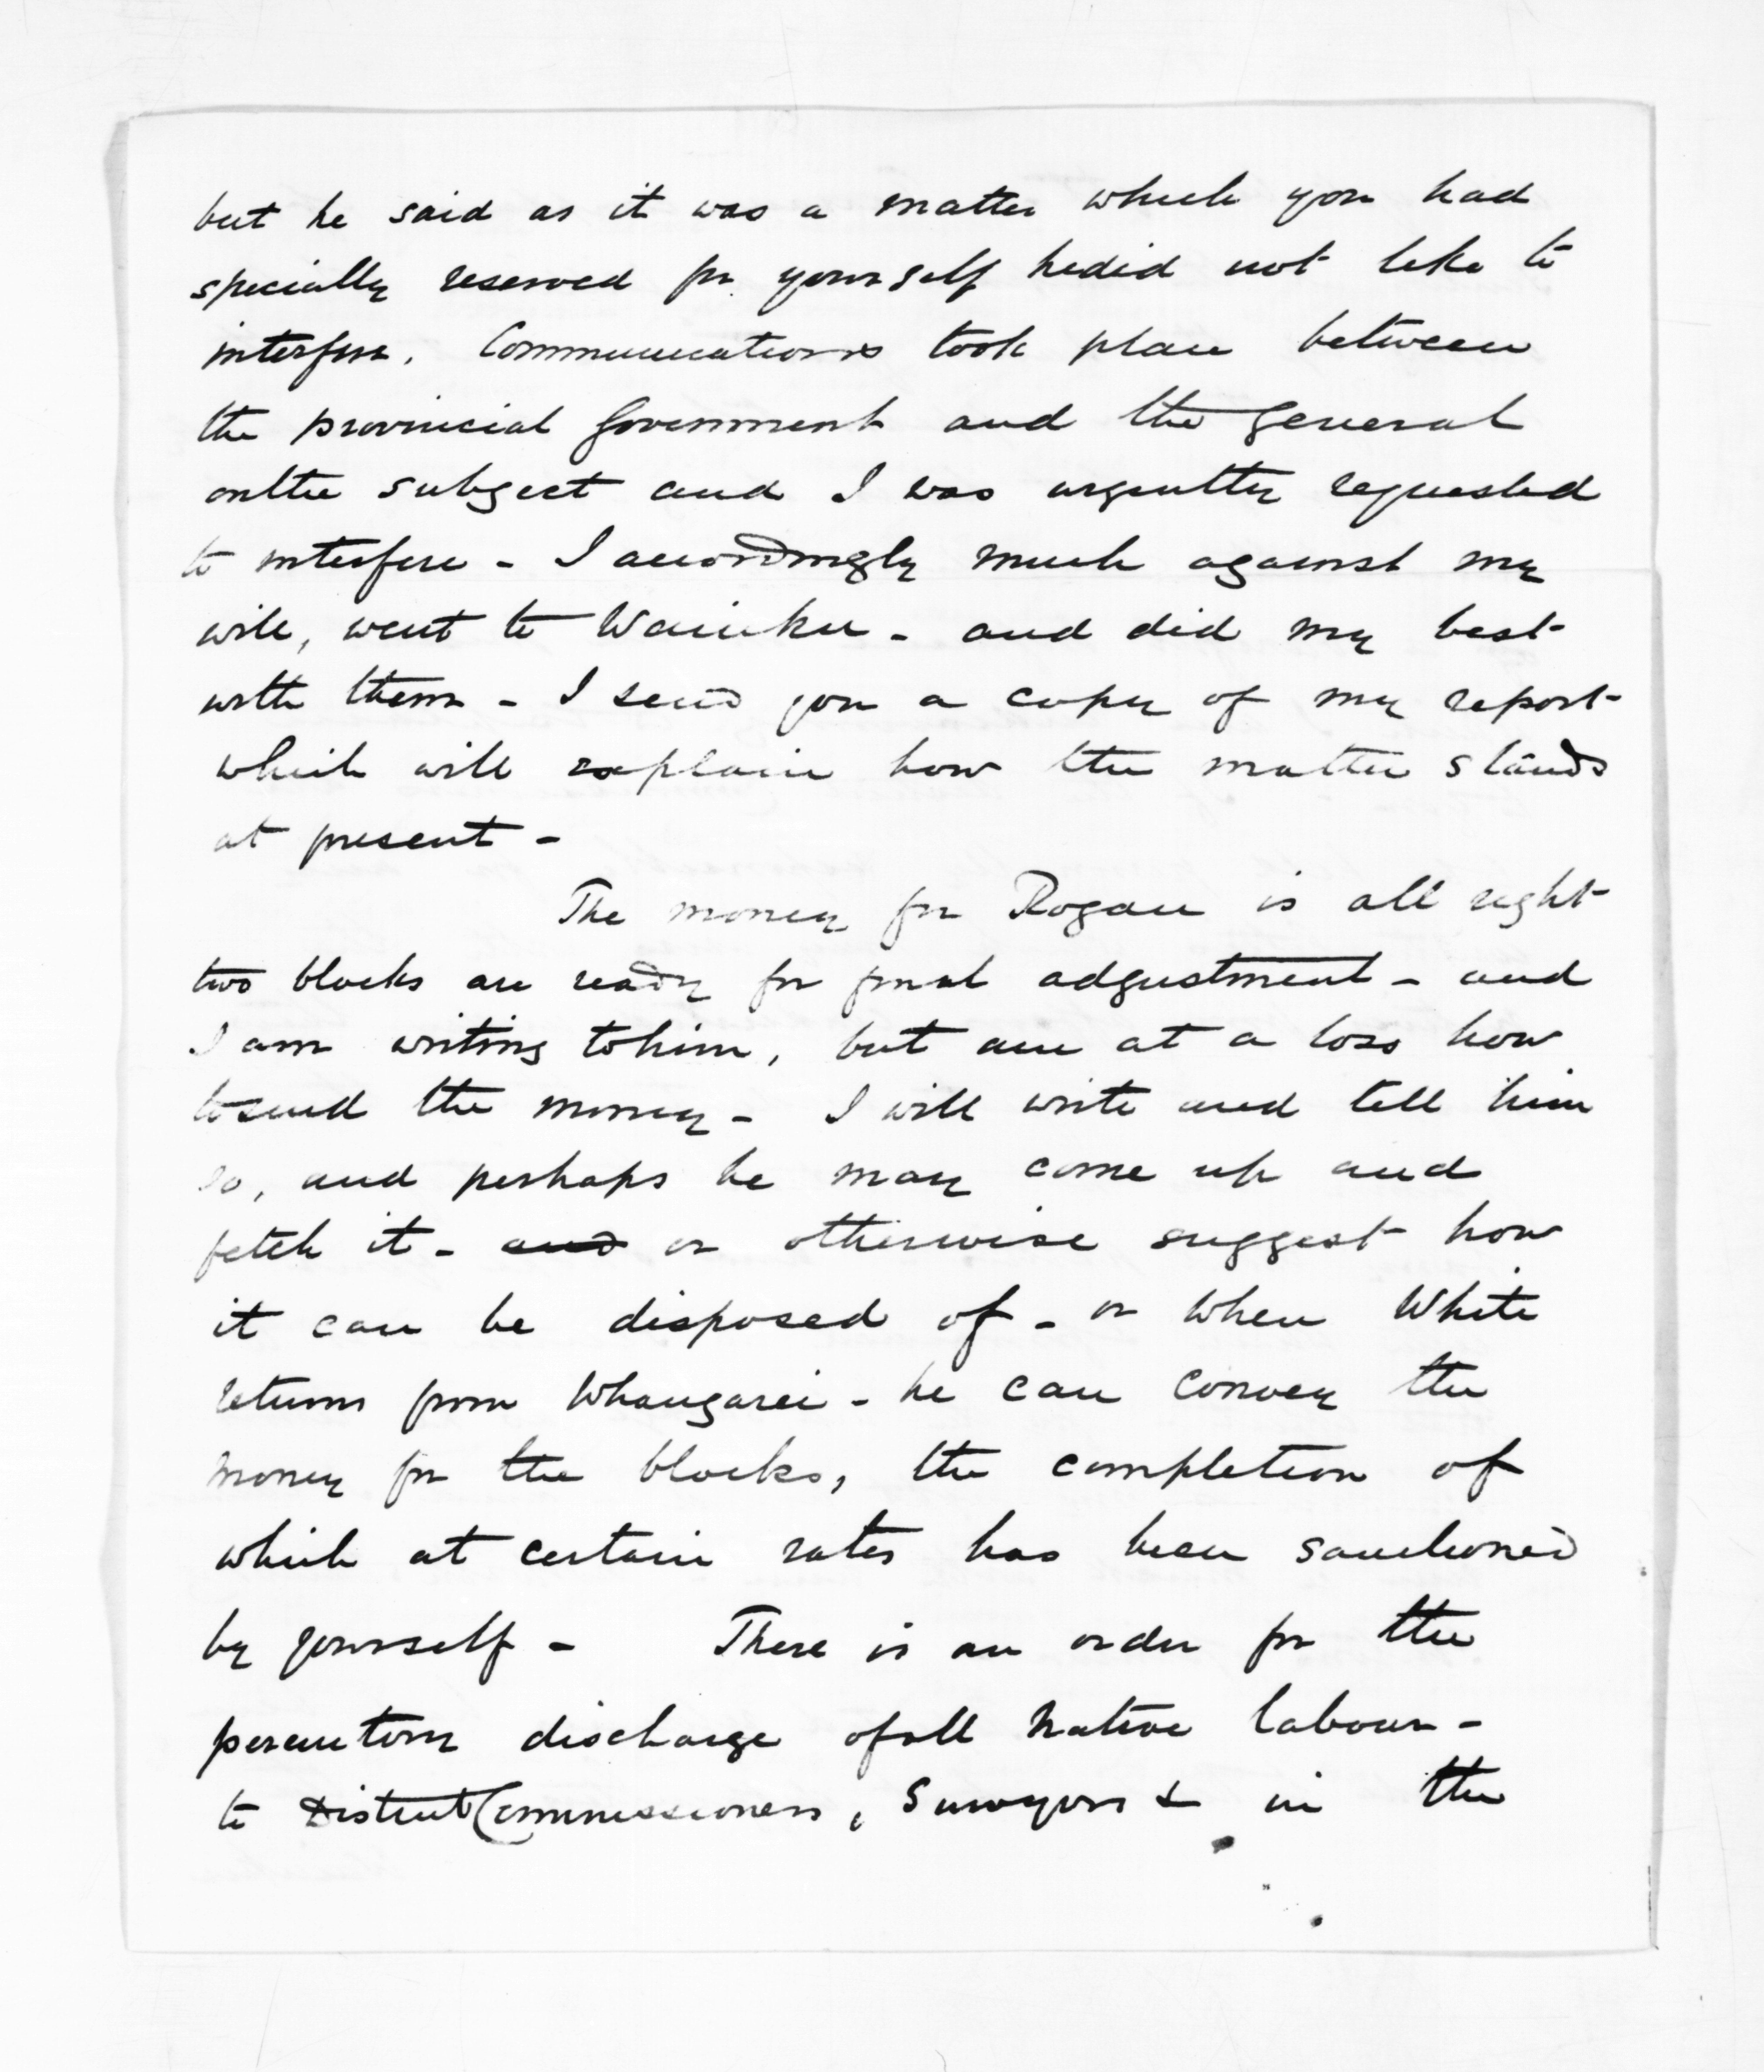 but he said as it was a matter which you had
specially reserved for yourself he did not like to
interfere. Communications took place between
the provincial Government and the General
on the subject and I was urgently requested
to interfere - I accordingly much against my
will, went to Waiuku - and did my best
with them - I send you a copy of my report
which will explain how the matter stands
at present -
The money for Rogan is all right
two blocks are ready for final adjustment - and
I am writing to him, but am at a loss how
to send the money - I will write and tell him
so, and perhaps he may come up and
fetch it - and or otherwise suggest how
it can be disposed of - or when White
returns from Whangarei - he can convey the
money for the blocks, the completion of
which at certain rates has been sanctioned
by yourself - There is an order for the
peremtory discharge of all native labour -
to District Commissioners, Surveyors & in the